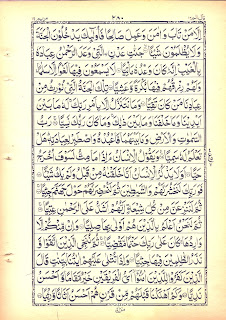 اِلَّا مَنْ تَابَ وَاٰمَنَ وَعَمِلَ صَالِحًا فَاُولٰٓئِكَ يَدْخُلُوْنَ الْجَنَّةَ
وَلَا يُظْلَمُوْنَ شَيْئًا جَنّٰتِ عَدْنِ الَّتِيْ وَعَدَ الرَّحْمٰنُ عِبَادَهٗ
بِالْغَيْبِ اِنَّهٗ كَانَ وَعْدُهٗ مَاْتِيًّا لَا يَسْمَعُوْنَ فِيْهَا لَغْوًا اِلَّا سَلٰمًا
وَلَهُمْ رِزْقُهُمْ فِيْهَا بُكْرَةً وَّعَشِيًّا تِلْكَ الْجَنَّةُ الَّتِيْ نُوْرِثُ مِنْ
عِبَادِنَا مَنْ كَانَ تَقِيًّا وَمَا نَتَنَزَّلُ اِلَّا بِاَمْرِ رَبِّكَ لَهٗ مَا بَيْنَ
اَيْدِيْنَا وَمَا خَلْفَنَا وَمَا بَيْنَ ذٰلِكَ وَمَا كَانَ رَبُّكَ نَسِيًّا رَبُّ
السَّمٰوٰتِ وَالْاَرْضِ وَمَا بَيْنَهُمَا فَاعْبُدْهُ وَاصْطَبِرْ لِعِبَادَتِهٖ هَلْ
تَعْلَمُ لَهٗ سَمِيًّا وَيَقُوْلُ الْاِنْسَانُ ءَاِذَا مَا مِتُّ لَسَوْفَ اُخْرَجُ
حَيًّا اَوَلَا يَذْكُرُ الْاِنْسَانُ اَنَّا خَلَقْنٰهُ مِنْ قَبْلُ وَلَمْ يَكُ شَيْئًا
فَوَرَبِّكَ لَنَحْشُرَنَّهُمْ وَالشَّيٰطِيْنَ ثُمَّ لَنُحْضِرَنَّهُمْ حَوْلَ جَهَنَّمَ جِثِيًّا
ثُمَّ لَنَنْزِعَنَّ مِنْ كُلِّ شِيْعَةٍ اَيُّهُمْ اَشَدُّ عَلَى الرَّحْمٰنِ عِتِيًّا
ثُمَّ لَنَحْنُ اَعْلَمُ بِالَّذِيْنَ هُمْ اَوْلٰى بِهَا صِلِيًّا وَاِنْ مِّنْكُمْ اِلَّا
وَارِدُهَا كَانَ عَلٰى رَبِّكَ حَتْمًا مَّقْضِيًّا ثُمَّ نُنَجِّي الَّذِيْنَ اتَّقَوْا وَّ
نَذَرُ الظّٰلِمِيْنَ فِيْهَا جِثِيًّا وَاِذَا تُتْلٰى عَلَيْهِمْ اٰيٰتُنَا بَيِّنٰتٍ قَالَ
الَّذِيْنَ كَفَرُوْا لِلَّذِيْنَ اٰمَنُوْا اَيُّ الْفَرِيْقَيْنِ خَيْرٌ مَّقَامًا وَّاَحْسَنُ
نَدِيًّا وَكَمْ اَهْلَكْنَا قَبْلَهُمْ مِّنْ قَرْنٍ هُمْ اَحْسَنُ اَثَاثًا وَّرِءْيًا